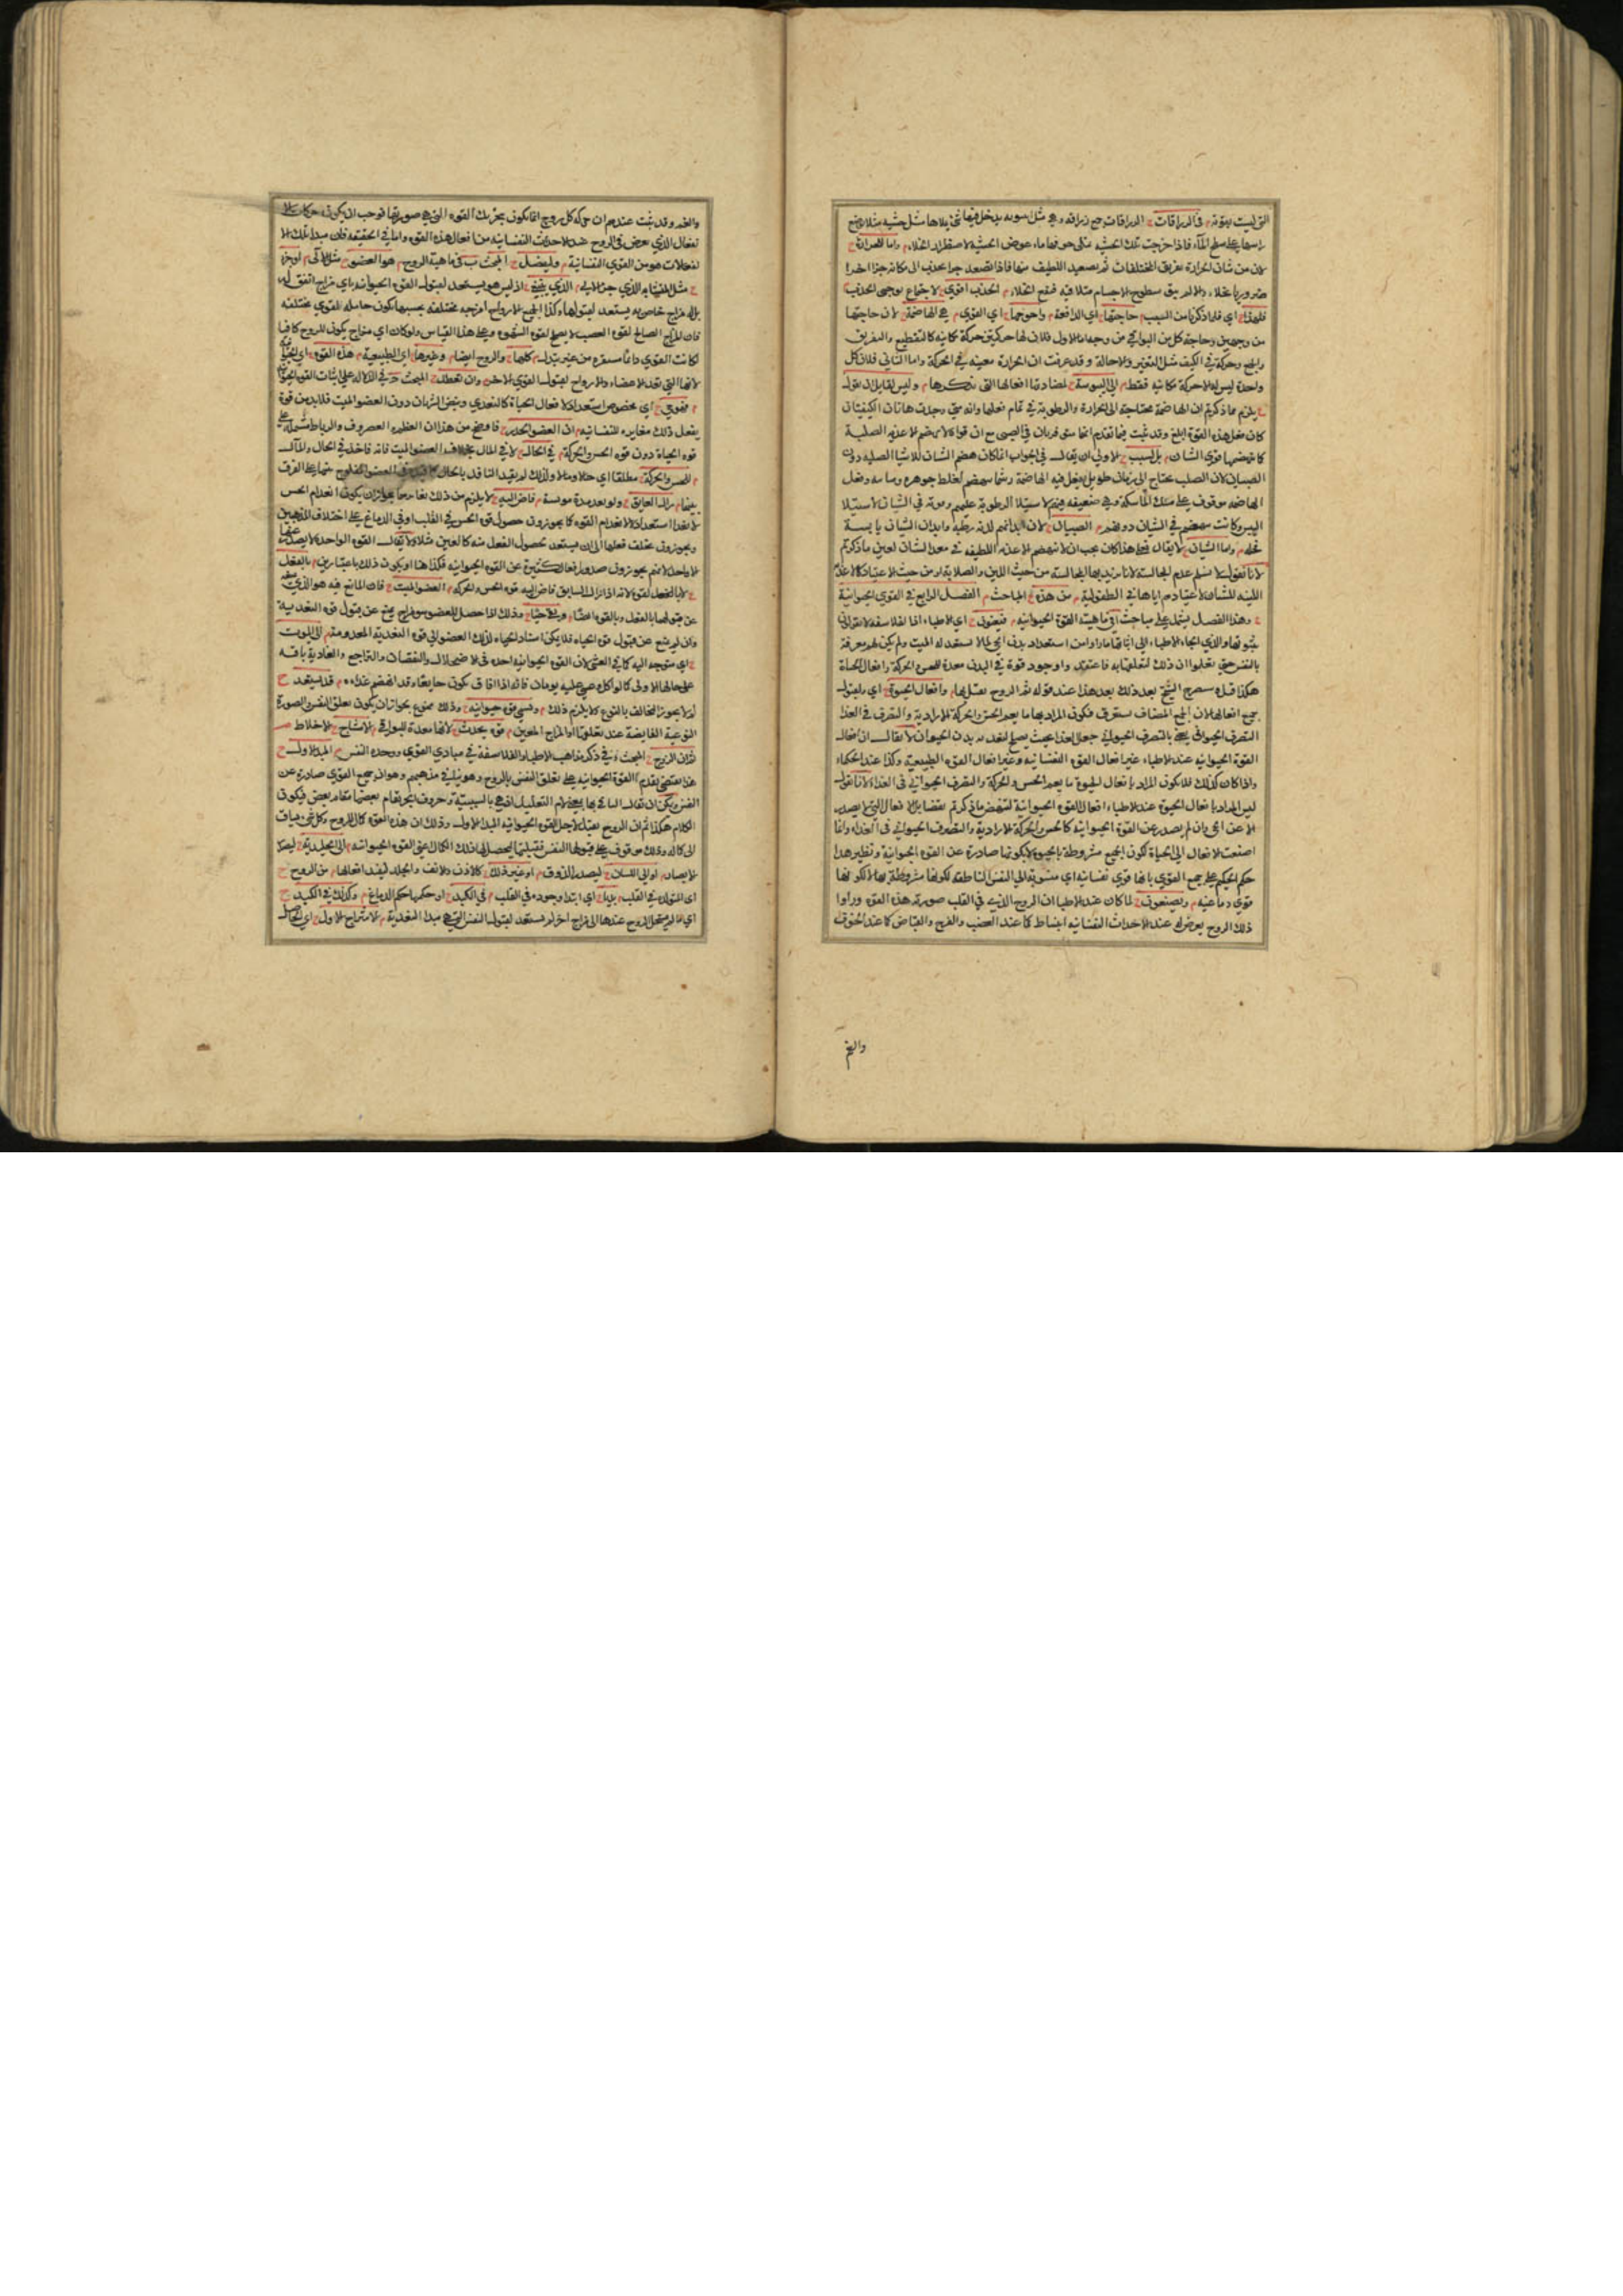 التى ليست بقوية م فى الزراقات ح الزراقات جمع زراقه وهى مثل انبوبه يدخل فيها
راسها على سطح الماء فاذا خرجت تلك الخشبه حوفها ماء عوض الخشبه لاضطرار الخلاء م واما الحرارة ح
لان من شان الحرارة تفريق المختلفات ثم تصعيد اللطيف منها فاذا تصعد جزء يجذب الى مكانه جزء اخر
ضرورة الخلاء سطوح الاجسام متلاقيه فيمتنع الخلاء م الجذب اقوى ح لاجتماع موجبى الجذب
فلهذا ح اى فلما ذكرنا من السبب م حاجتها ح اى الدافعة م واحوجها ح اى القوى م هى الهاضمة ح لان حاجتها
من وجهين وحاجة كل من البواقى من وجه اما الاول فلان لها حركتين حركة مكانيه كالتقطيع والتفريق
والجمع وحركة فى الكيف مثل التغير والاحالة وقد عرفت ان الحرارة معينه فى الحركة واما الثانى فلان كل
واحدة ليس لها الا حركة مكانيه فقط م الى اليبوسة ح لمضادتها افعالها التى نذكرها م وليس لقايل ان يقول
ح يلزم مما ذكرتم ان الهاضمة محتاجة الى الحرارة والرطوبة فى تمام فعلها وانه متى وجدت هاتان الكيفيتان
كان فعل هذه القوة ابلغ وقد ثبت فيما تقدم انهما متوفرتان فى الصبى مع ان قواه لا تهضم الاغذية الصلبة
كما تهضمها قوى الشبان م بل لسبب ح الاولى ان يقال فى الجواب انما كان هضم الشبان للاشيا الصلبه دون
الصبيان لان الصلب يحتاج الى زمان طويل يفعل فيه الهاضمة
الهاضمه موقوف على مسك الماسكة وهى ضعيفه فيهم لاستيلا الرطوبة عليهم وقويه فى الشبان لاستيلا
اليبس وكانت تهضم فى الشبان دونهم م الصبيان ح لان ابدانهم لدنه رطبة وابدان الشبان يابسة
م واما الشبان ح لا يقال فعلى هذا كان يجب ان لا تهضم الاغذية اللطيفه فى معدة الشبان لعين ما ذكرتم
لانا نقول لا نسلم عدم المجانسة لانا نريد بها المجانسة من حيث اللين والصلابة او من حيث الاعتياد
اللينه للشبان لاعتيادهم اياها فى الطفولية م من هذه ح المباحث م الفصل الرابع فى القوى الحيوانية
ح وهذا الفصل يشتمل على مباحث آ فى ماهية القوة الحيوانيه م فيعنون ح اى الاطباء اذ الفلاسفة لا
ثبوتها والذى الجاء الاطباء الى اثباتها ما راوا من استعداد بدن الحى لما لا يستعد له الميت ولم يكن لهم معرفة
بالنفس حتى يعلموا ان ذلك لتعلقها به فاعتقدوا وجود قوة فى البدن معدة للحس والحركة وافعال الحياة
هكذا صرح الشيخ بعد ذلك بعد هذا عند قوله ثم الروح م وافعال الحيوة ح اى ولقبول
جميع افعالها لان الجمع المضاف يستغرق فيكون المراد بها ما يعم الحس والحركة الارادية والتصرف فى الغذا
التصرف الحيوانى يعنى بالتصرف الحيوانى جعل الغذا بحيث يصلح لتغذيه بدن الحيوان لا يقال ان افعال
القوة الحيوانيه عند الاطباء غير افعال القوة النفسانيه وغير افعال القوه الطبيعية وكذا عند الحكماء
واذا كان كذلك فلا يكون المراد بافعال الحيوة ما يعم الحس والحركة والتصرف الحيوانى فى الغذاء لانا نقول
ليس المراد بافعال الحيوة عند الاطباء افعال القوه الحيوانية لينتقض ما ذكرتم بل الافعال التى لا يصدر
الا عن الحى وان لم يصدر عن القوة الحيوانيه كالحس والحركة الارادية والتصرف الحيوانى فى الغذاء وانما
اضيفت الافعال الى الحياة لكون الجميع مشروطة بالحيوة لا بكونها صادرة عن القوه الحيوانية ونظير هذا
حكم الحكيم على جميع القوى بانها قوى نفسانيه اى منسوبة الى النفس الناطقه لكونها مشروطة بها لا لكونها
قوى دماغيه م ويصنعون ح لما كان عند الاطبا ان الروح الذى فى القلب صورته هذه القوه وراوا
ذلك الروح يعرض له عند الاحداث النفسانيه انبساط كما عند الغضب والفرح وانقباض كما عند الخوف
والغم
والغم وقد ثبت عندهم ان حركة كل روح انما يكون بتحريك القوه التى هى صورتها توجب ان يكون حركات
الافعال الذى تعرض فى الروح عند الاحداث النفسانيه من افعال هذه القوه واما فى الحقيقه فان مبدا تلك الا
نفعالات هو من القوى النفسانية م وليفصل ح المبحث ب فى ماهية الروح م هو العضو ح مثل الالى م او جزء
ح مثل المتشابه الذى جزء الالى م الذى ينبغى ح اذ ليس هو يستعد لقبول القوه الحيوانيه باى مزاج اتفق له
بل له مزاج خاص به يستعد لقبولها وكذا الجميع الارواح امزجه مختلفة بحسبها تكون حامله للقوى مختلفه
فان المزاج الصالح لقوه الغضب لا يصلح لقوه الشهوه وعلى هذا القياس ولو كان اى مزاج يكون للروح كافيا
لكانت القوى دائما مستقره من غير تبدل م كلها ح والروح ايضا م وغيرها ح اى الطبيعية م هذه القوه ح اى
لانها التى تعد الاعضاء والارواح لقبول القوى الاخر م وان تعطلت ح المبحث ج فى الدلاله على اثبات القوه
م فقوى ح اى مخصوص استعداد لافعال الحياة كالتغذى ونبض الشريان دون العضو الميت فلا بد من قوة
يفعل ذلك مغايره للنفسانيه م ان العضو الخدر ح فاوضح من هذا ان العظم والغضروف والرباط
قوه الحياة دون قوه الحس والحركة م فى الحال ح لا فى المال بخلاف العضو الميت فانه فاقد فى الحال والمال
م للحس والحركة ح مطلقا اى حالا ومالا ولذلك لم يقيد الفاقد بالحال
بينهما م زال العايق ح ولو بعد مدة م فاض اليه ح لا يلزم من ذلك بجواز ان يكون انعدام الحس
لانعدام استعداد لا لانعدام القوه كما يجوزون حصول قوه الحس فى القلب او فى الدماغ على اختلاف المذهبين
ويجوزون تخلف فعلها الى ان يستعد لحصول الفعل منه كالعين مثلا ولا يقال القوه الواحد لا يصدر عنها
الا واحد لانهم يجوزون صدور افعال كثيرة عن القوه الحيوانيه فكذا هنا او يكون ذلك باعتبارين م بالفعل
ح لا بالفعل لقوه لانه اذا زال السابق فاض اليه قوه الحس والحركه م العضو الميت ح فان المانع فيه هو الذى
عن قبولها بالفعل وبالقوه ايضا م وبقى حيا ح وذلك اذا حصل للعضو سو مزاج يمنع عن قبول قوه التغذية
وان لم يمنع عن قبول قوه الحياه فلا يمكن اسناد الحياه لذلك العضو الى قوه التغذية المعدومة م الى الموت
ح اى متوجه اليه كما فى الغشى لان القوه الحيوانيه اخذه فى الاضمحلال والنقصان والتراجع والغاذية باقيه
على حالها الاولى كما لو اكل وغشى عليه يومان فانه اذا افاق يكون جايعا وقد انهضم غذاءه م قد يستعد ح
لم لا يجوز المخالف بالنوع كلا يلزم ذلك م وتسمى قوه حيوانيه ح وذلك ممنوع بجواز ان يكون تعلق النفس الصورة
النوعية الفايضة عند تعلقها او المزاج المعين م قوه يحدث ح لانها معدة للبواقى م الامشاج ح الاخلاط
لذلك الروح ح المبحث د فى ذكر مذاهب الاطباء والفلاسفة فى مبادى القوى ووحده النفس م المبدا الاول ح
هذا يقتضى تقدم القوة الحيوانيه على تعلق النفس بالروح وهو ينافى مذهبهم وهو ان جميع القوى صادرة عن
النفس ويمكن ان يقال البا فى بها بمعنى لام التعليل اذ هى بالسببية وحروف الجر تقام بعضها مقام بعض فيكون
الكلام هكذا ثم ان الروح تقبل لاجل القوه الحيوانيه المبدا الاول وذلك ان هذه القوه كمال للروح وكل شى يساق
الى كماله وذلك موقوف على قبولها النفس فتقبلها ليحصل لها ذلك الكمال اعنى القوه الحيوانيه م الى الجليدية ح ليصدر
الابصار م او الى اللسان ح ليصدر الذوق م او غير ذلك ح كالاذن والانف والجلد ليفيد افعالها م من الروح ح
اى المتولد فى القلب م بديا ح اى ابتدا وجوده فى القلب م فى الكبد ح او حكمها حكم الدماغ م وكذلك فى الكبد ح
اى ما لم يستحل الروح عندها الى مزاج اخر لم يستعد لقبول النفس التى هى مبدا التغذية م الامتزاج الاول ح اى